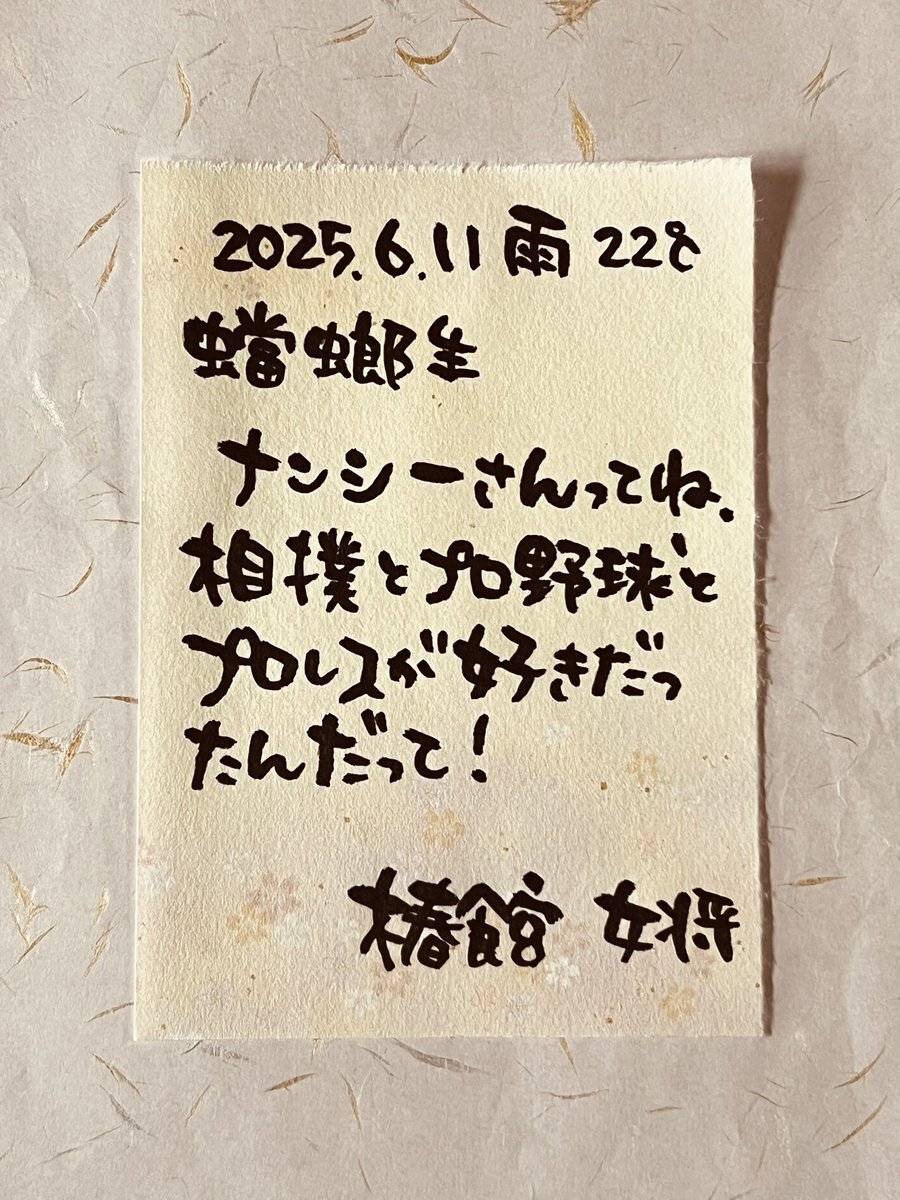 2025.6.11 雨 22℃
蟷螂生
ナンシーさんってね、
相撲とプロ野球と
プロレスが好きだっ
たんだって!
椿館 女将